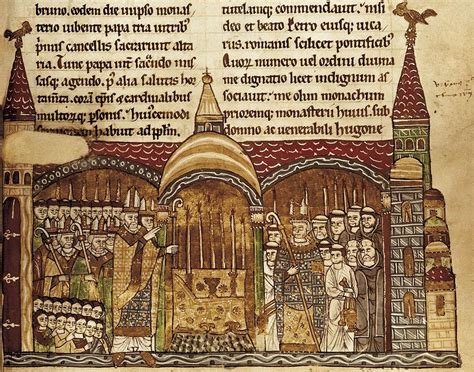 bruno, eodem die in ipso monas
terio iubente papa tria in tribus
primis cancellis sacrarunt alta
ria. Tunc papa
sasq; agendū, p alia salutis horta
corā epis & cardinalibus
psonis, huiuscemodi
sermonem habuit ad pplm.
commendauit,
deo et beato Petro eiusq; uica
riis, romanis scilicet pontificib'
Quorū numero uel ordini diuina
me dignatio licet indignum as
sociauit, me olim monachum
prioremq; monasterii huius sub
domno ac uenerabili hugone